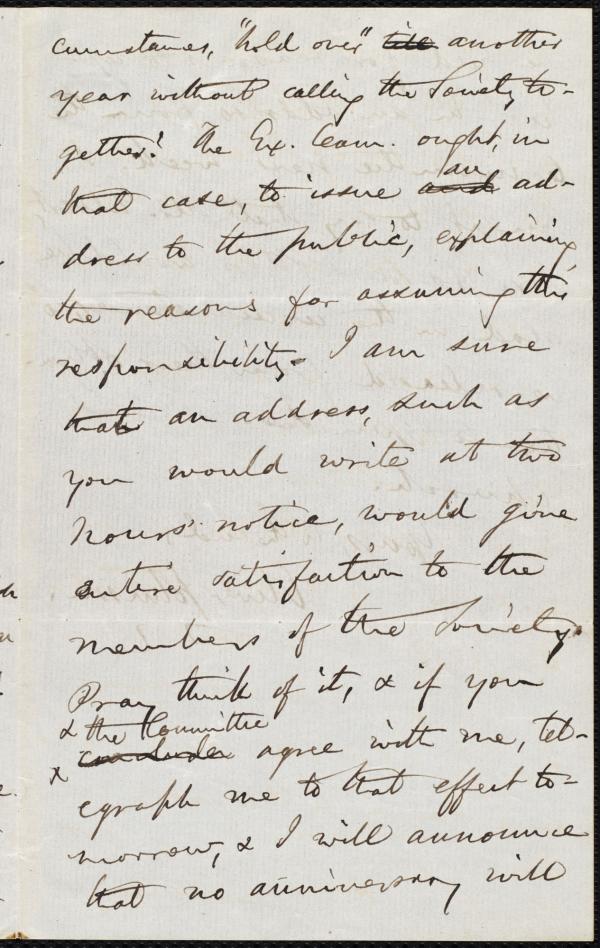 cumstances, "hold over" till another
year without calling the Society to-
gether? The Ex. Com. ought, in
that case, to issue and an ad-
dress to the public, explaining
the reasons for assuming this
responsibility. I am sure
that an address, such as
you would write at two
hours' notice, would give
entire satisfaction to the
members of the Society.
Pray think of it, & if you
& the Committee
conclude agree with me, tel-
x egraph me to that effect to-
morrow, & I will announce
that no anniversary will